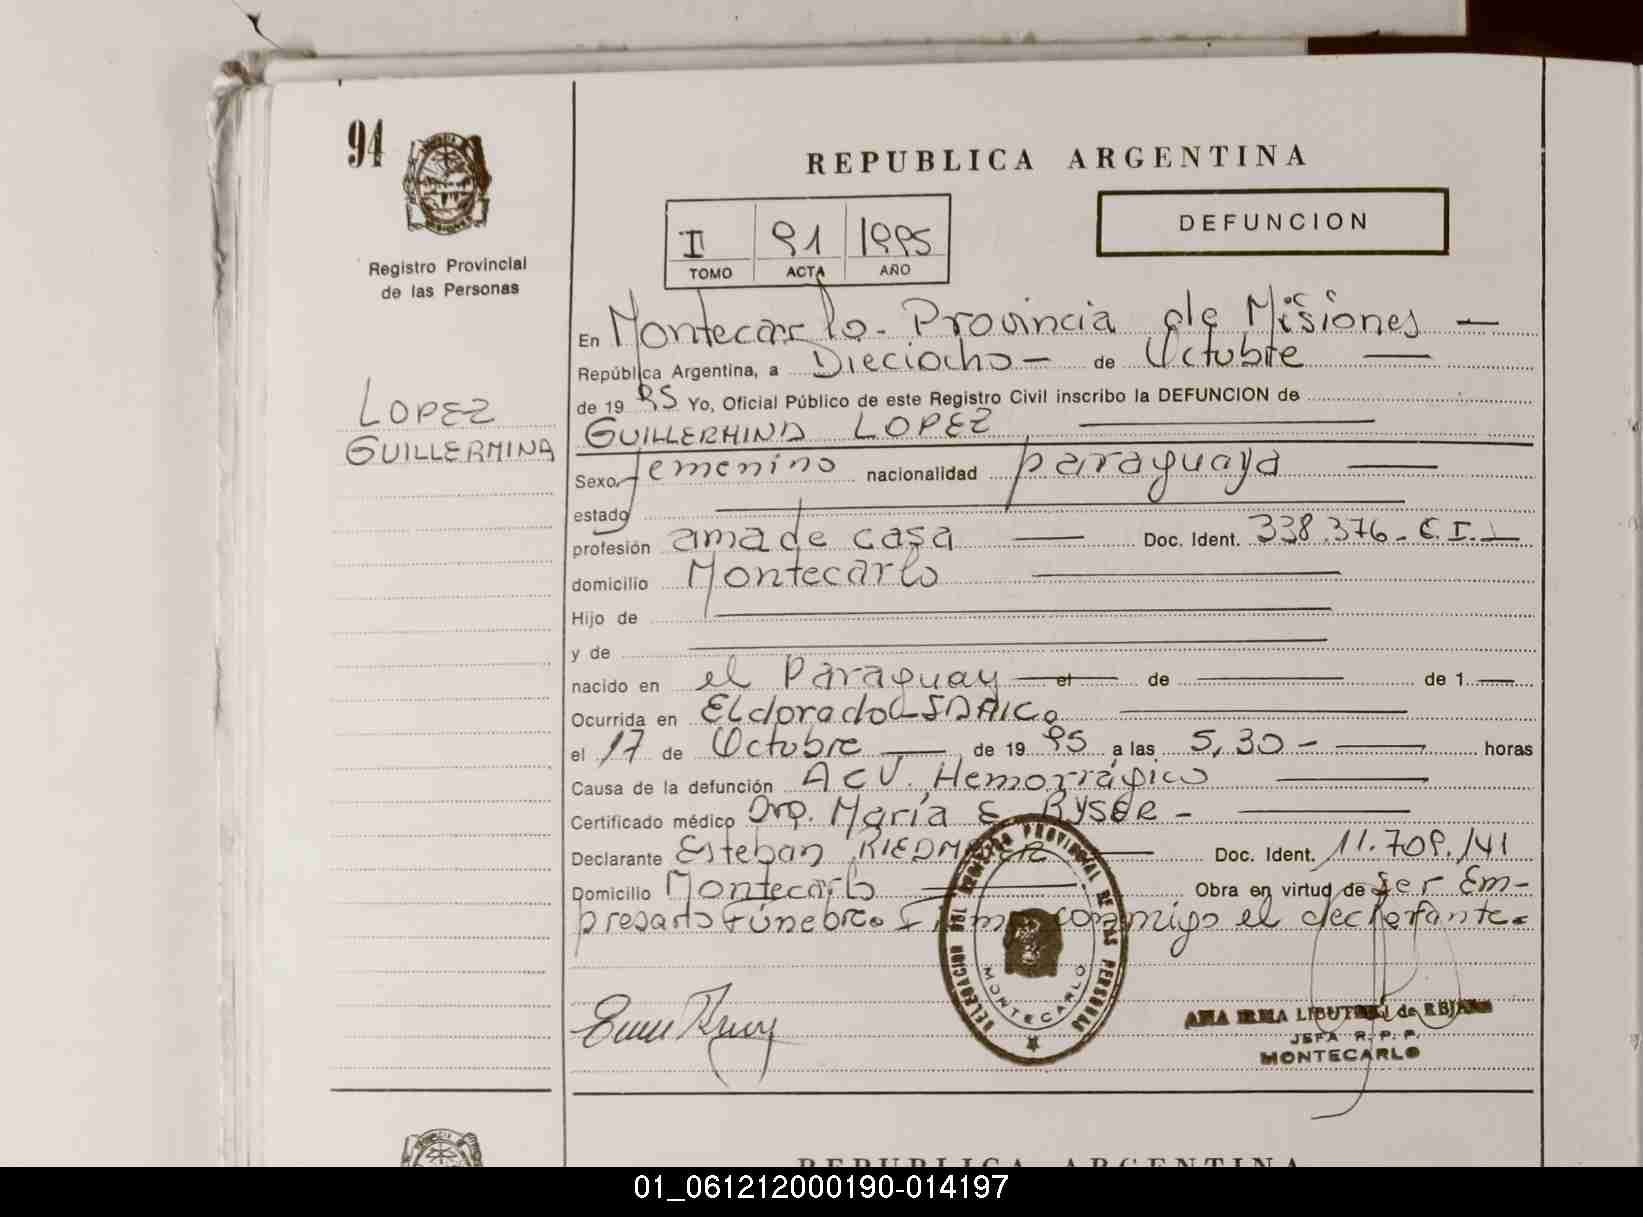 94
REPUBLICA ARGENTINA
I 91 1995
TOMO ACTA AÑO
DEFUNCION
Registro Provincial
de las Personas
LOPEZ
GUILLERMINA
En Montecarlo - Provincia de Misiones —
República Argentina, a Dieciocho — de Octubre —
de 19 95 Yo, Oficial Público de este Registro Civil inscribo la DEFUNCION de
GUILLERMINA LOPEZ —
Sexo femenino nacionalidad paraguaya —
estado —
profesión ama de casa — Doc. Ident. 338.376 - C.I. —
domicilio Montecarlo —
Hijo de —
y de —
nacido en el Paraguay — el — de — de 1 —
Ocurrida en Eldorado
el 17 de Octubre — de 19 95 a las 5,30 - — horas
Causa de la defunción ACV. Hemorrágico —
Certificado médico Dra. María E. —
Declarante Esteban — Doc. Ident. 11.709.141
Domicilio Montecarlo — Obra en virtud de ser Em-
presario Fúnebre. Firma conmigo el declarante.
DELEGACION DEL REGISTRO PROVINCIAL DE LAS PERSONAS
MONTECARLO
JEFA R. P. P.
MONTECARLO
REPUBLICA ARGENTINA
01_061212000190-014197